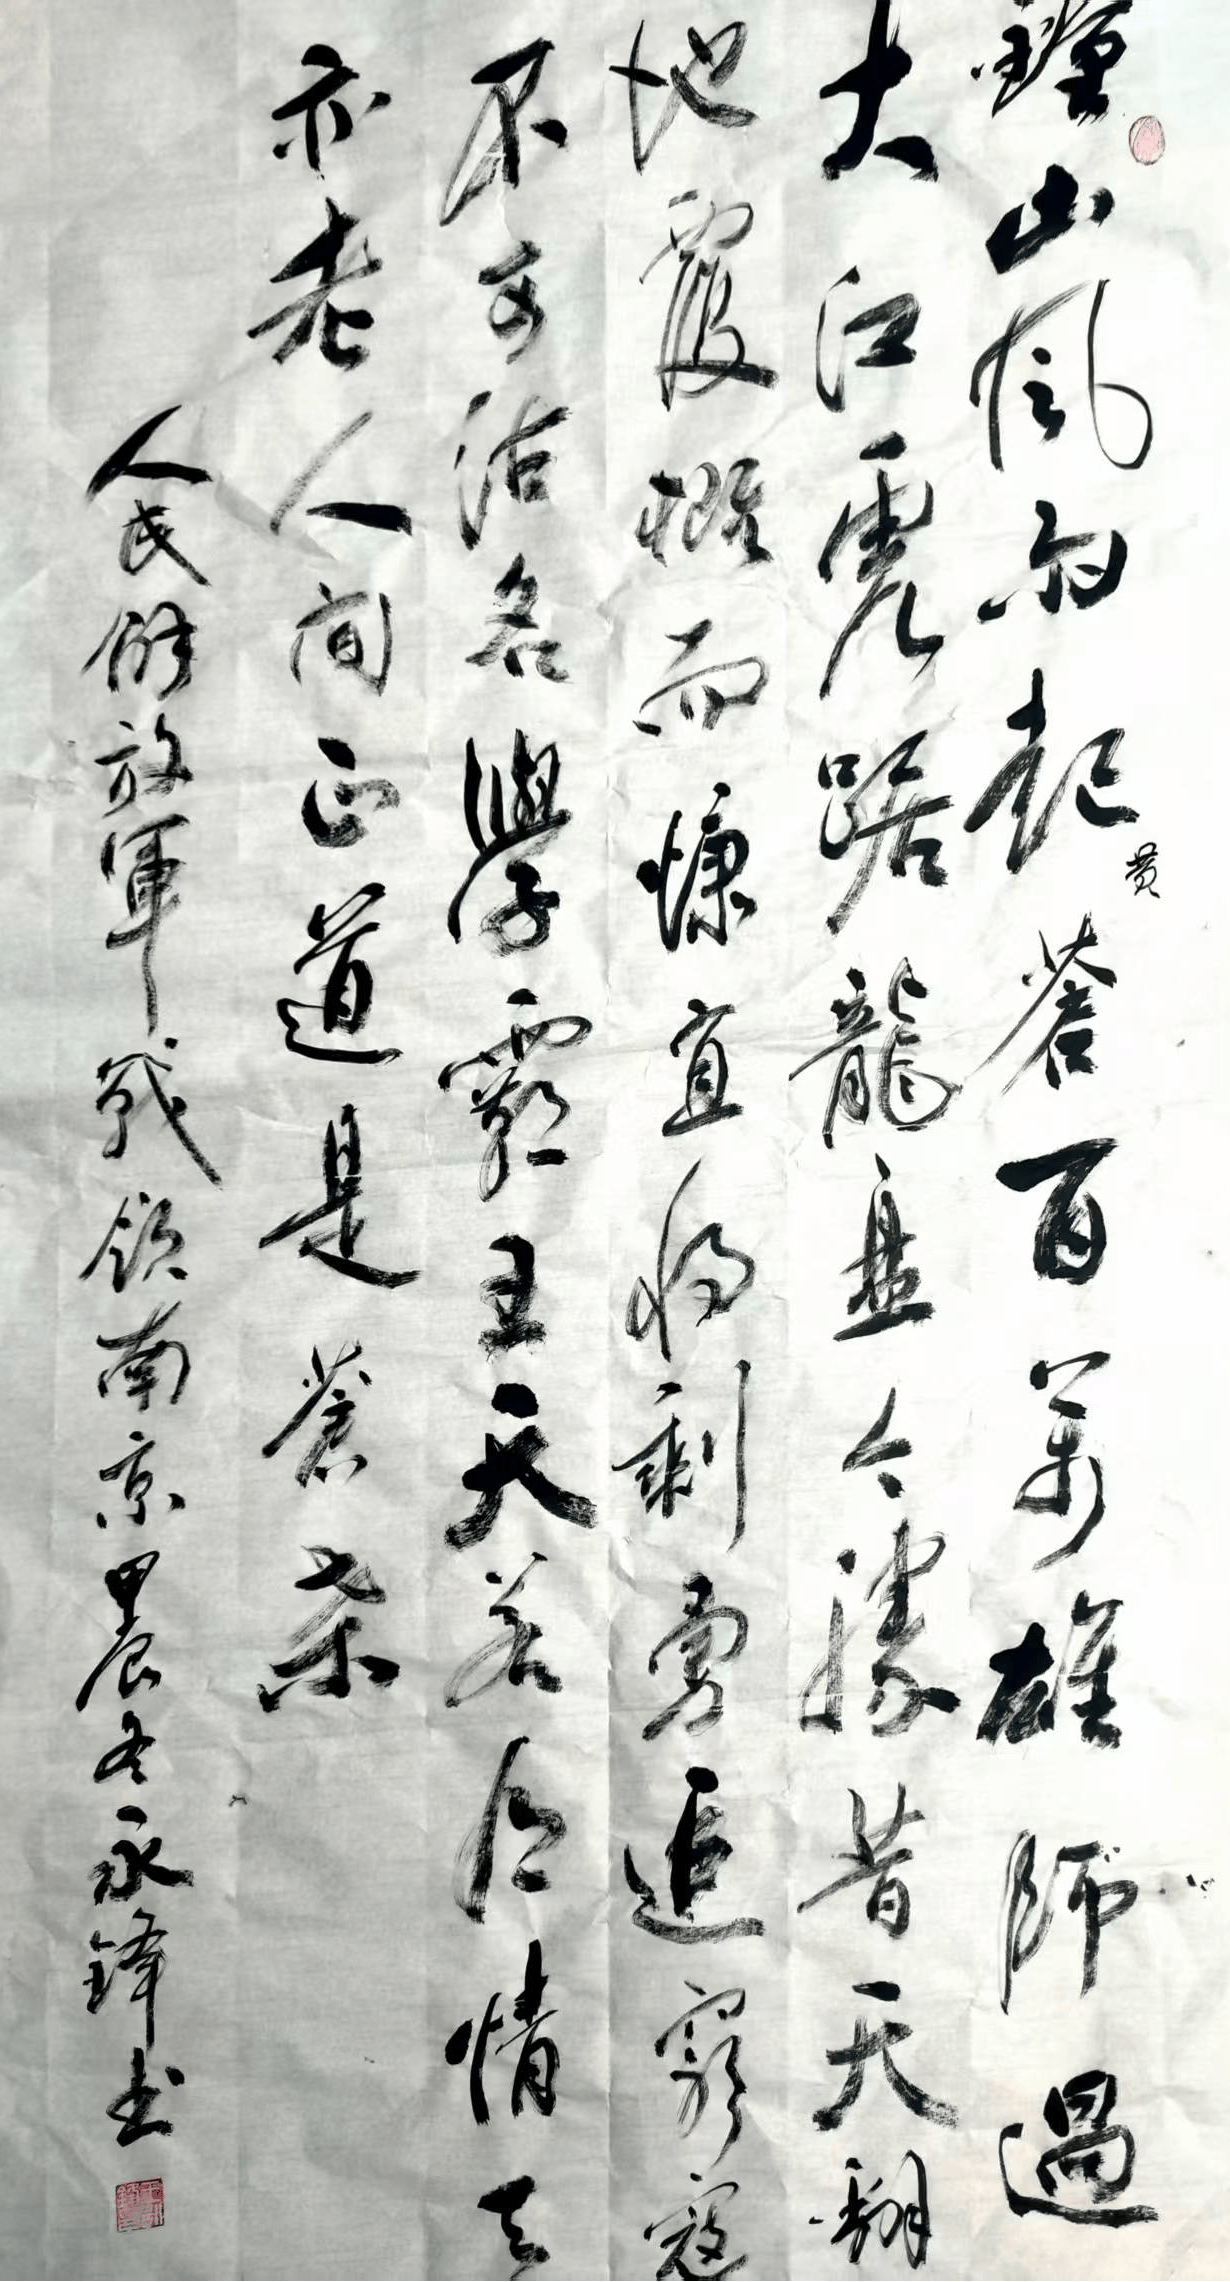 鍾山風雨起蒼百萬雄師過
黄
大江虎踞龍盤今勝昔天翻
地覆慨而慷宜将剩勇追窮寇
不可沽名學霸王天若有情天
亦老人间正道是蒼桑
人民解放軍战領南京甲辰冬永鋒书